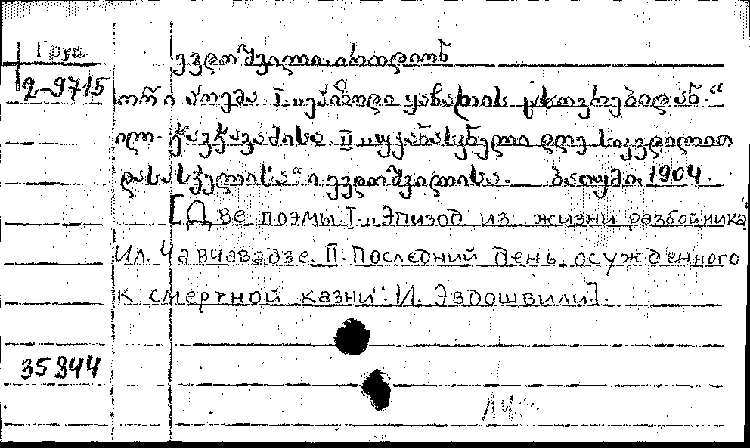 Груз
2-9715
ევდოშვილი იროდიონ
ორი პოემა I „ეპიზოდი ყაჩაღის ცხოვრებიდან.“
ილ. ჭავჭავაძისა II „უკანასკნელი დღე სიკვდილით
დასასჯელისა“ ი ევდოშვილისა. ბათუმი 1904.
[Две поэмы I „Эпизод из жизни разбойника“
Ил. Чавчавадзе. II. Последний день осужденного
к смертной казни“. И. Эвдошвили].
35844